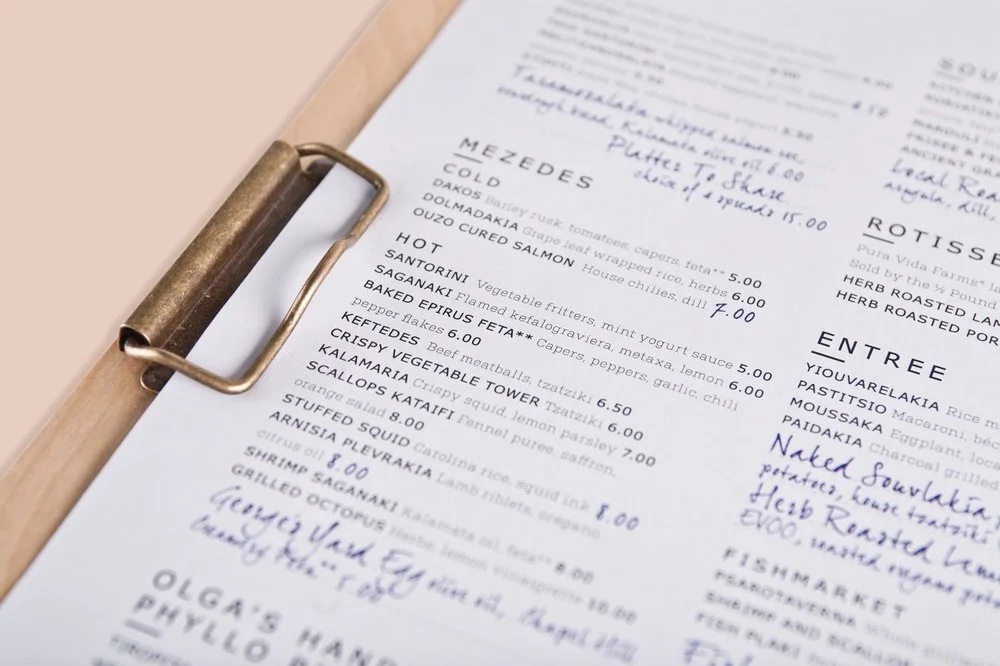 Taramosalata whipped salmon roe,
sourdough bread, Kalamata olive oil 6.00
Platter To Share
choice of 4 spreads 15.00
MEZEDES
COLD
DAKOS Barley rusk, tomatoes, capers, feta** 5.00
DOLMADAKIA Grape leaf wrapped rice, herbs 6.00
OUZO CURED SALMON House chilies, dill 7.00
HOT
SANTORINI Vegetable fritters, mint yogurt sauce 5.00
SAGANAKI Flamed kefalograviera, metaxa, lemon 6.00
BAKED EPIRUS FETA** Capers, peppers, garlic, chili
pepper flakes 6.00
KEFTEDES Beef meatballs, tzatziki 6.50
CRISPY VEGETABLE TOWER Tzatziki 6.00
KALAMARIA Crispy squid, lemon parsley 7.00
SCALLOPS KATAIFI Fennel puree, saffron,
orange salad 8.00
STUFFED SQUID Carolina rice, squid ink 8.00
ARNISIA PLEVRAKIA Lamb riblets, oregano,
citrus oil 8.00
SHRIMP SAGANAKI Kalamata oil, feta** 8.00
GRILLED OCTOPUS Herbs lemon vinaigrette 10.00
George's Yard Egg olive oil, Chapel Hill
Creamery feta** 5.00
OLGA'S HAND
PHYLLO
KITCHEN
ANCIENT
Local Roa
arugula, dill,
ROTISSE
Pura Vida Farms* la
Sold by the ½ Pound
HERB ROASTED LAM
HERB ROASTED POR
ENTREE
YIOUVARELAKIA Rice m
PASTITSIO Macaroni, béc
MOUSSAKA Eggplant, loca
PAIDAKIA Charcoal grilled
Naked Souvlakia
potatoes, house tzatziki
Herb Roasted Lemo
EVOO, roasted oregano pota
FISHMARKET
PSAROTAVERNA Whole grille
SHRIMP AND SCALLO
FISH PLAKI